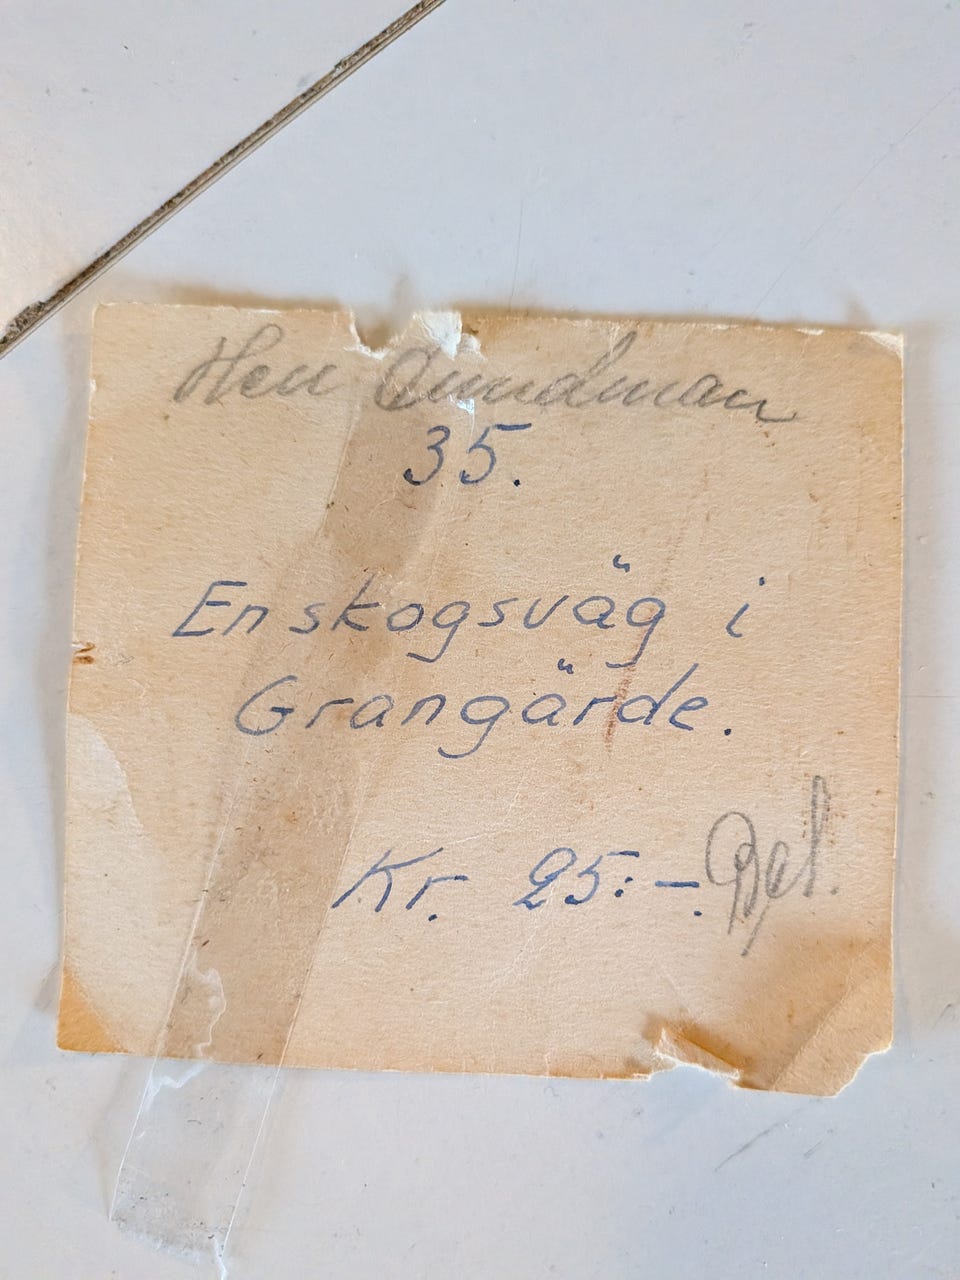 Herr
35.
En skogsväg i
Grangärde.
Kr. 25:-. Bet.